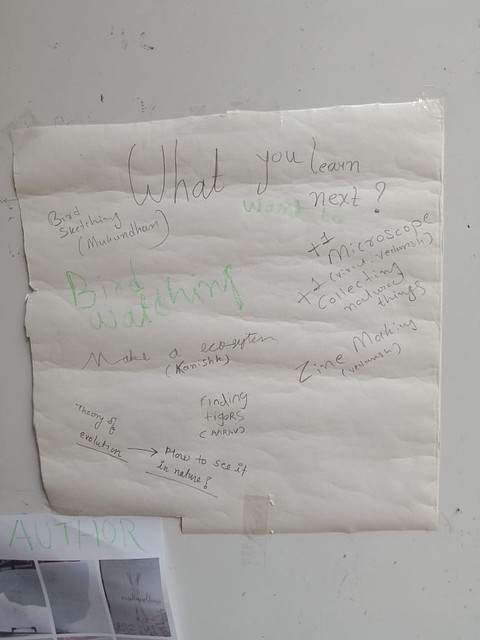 What you learn
want to next?
Bird
Sketching
(Mukundhan)
+1 Microscope
+1 Collecting
natural
things
Bird
watching
Make a ecosystem
(Kanishk)
Zine Making
(vedansh)
Finding
tigers
(AARAV)
Theory of
evolution → How to see it
in nature!
AUTHOR